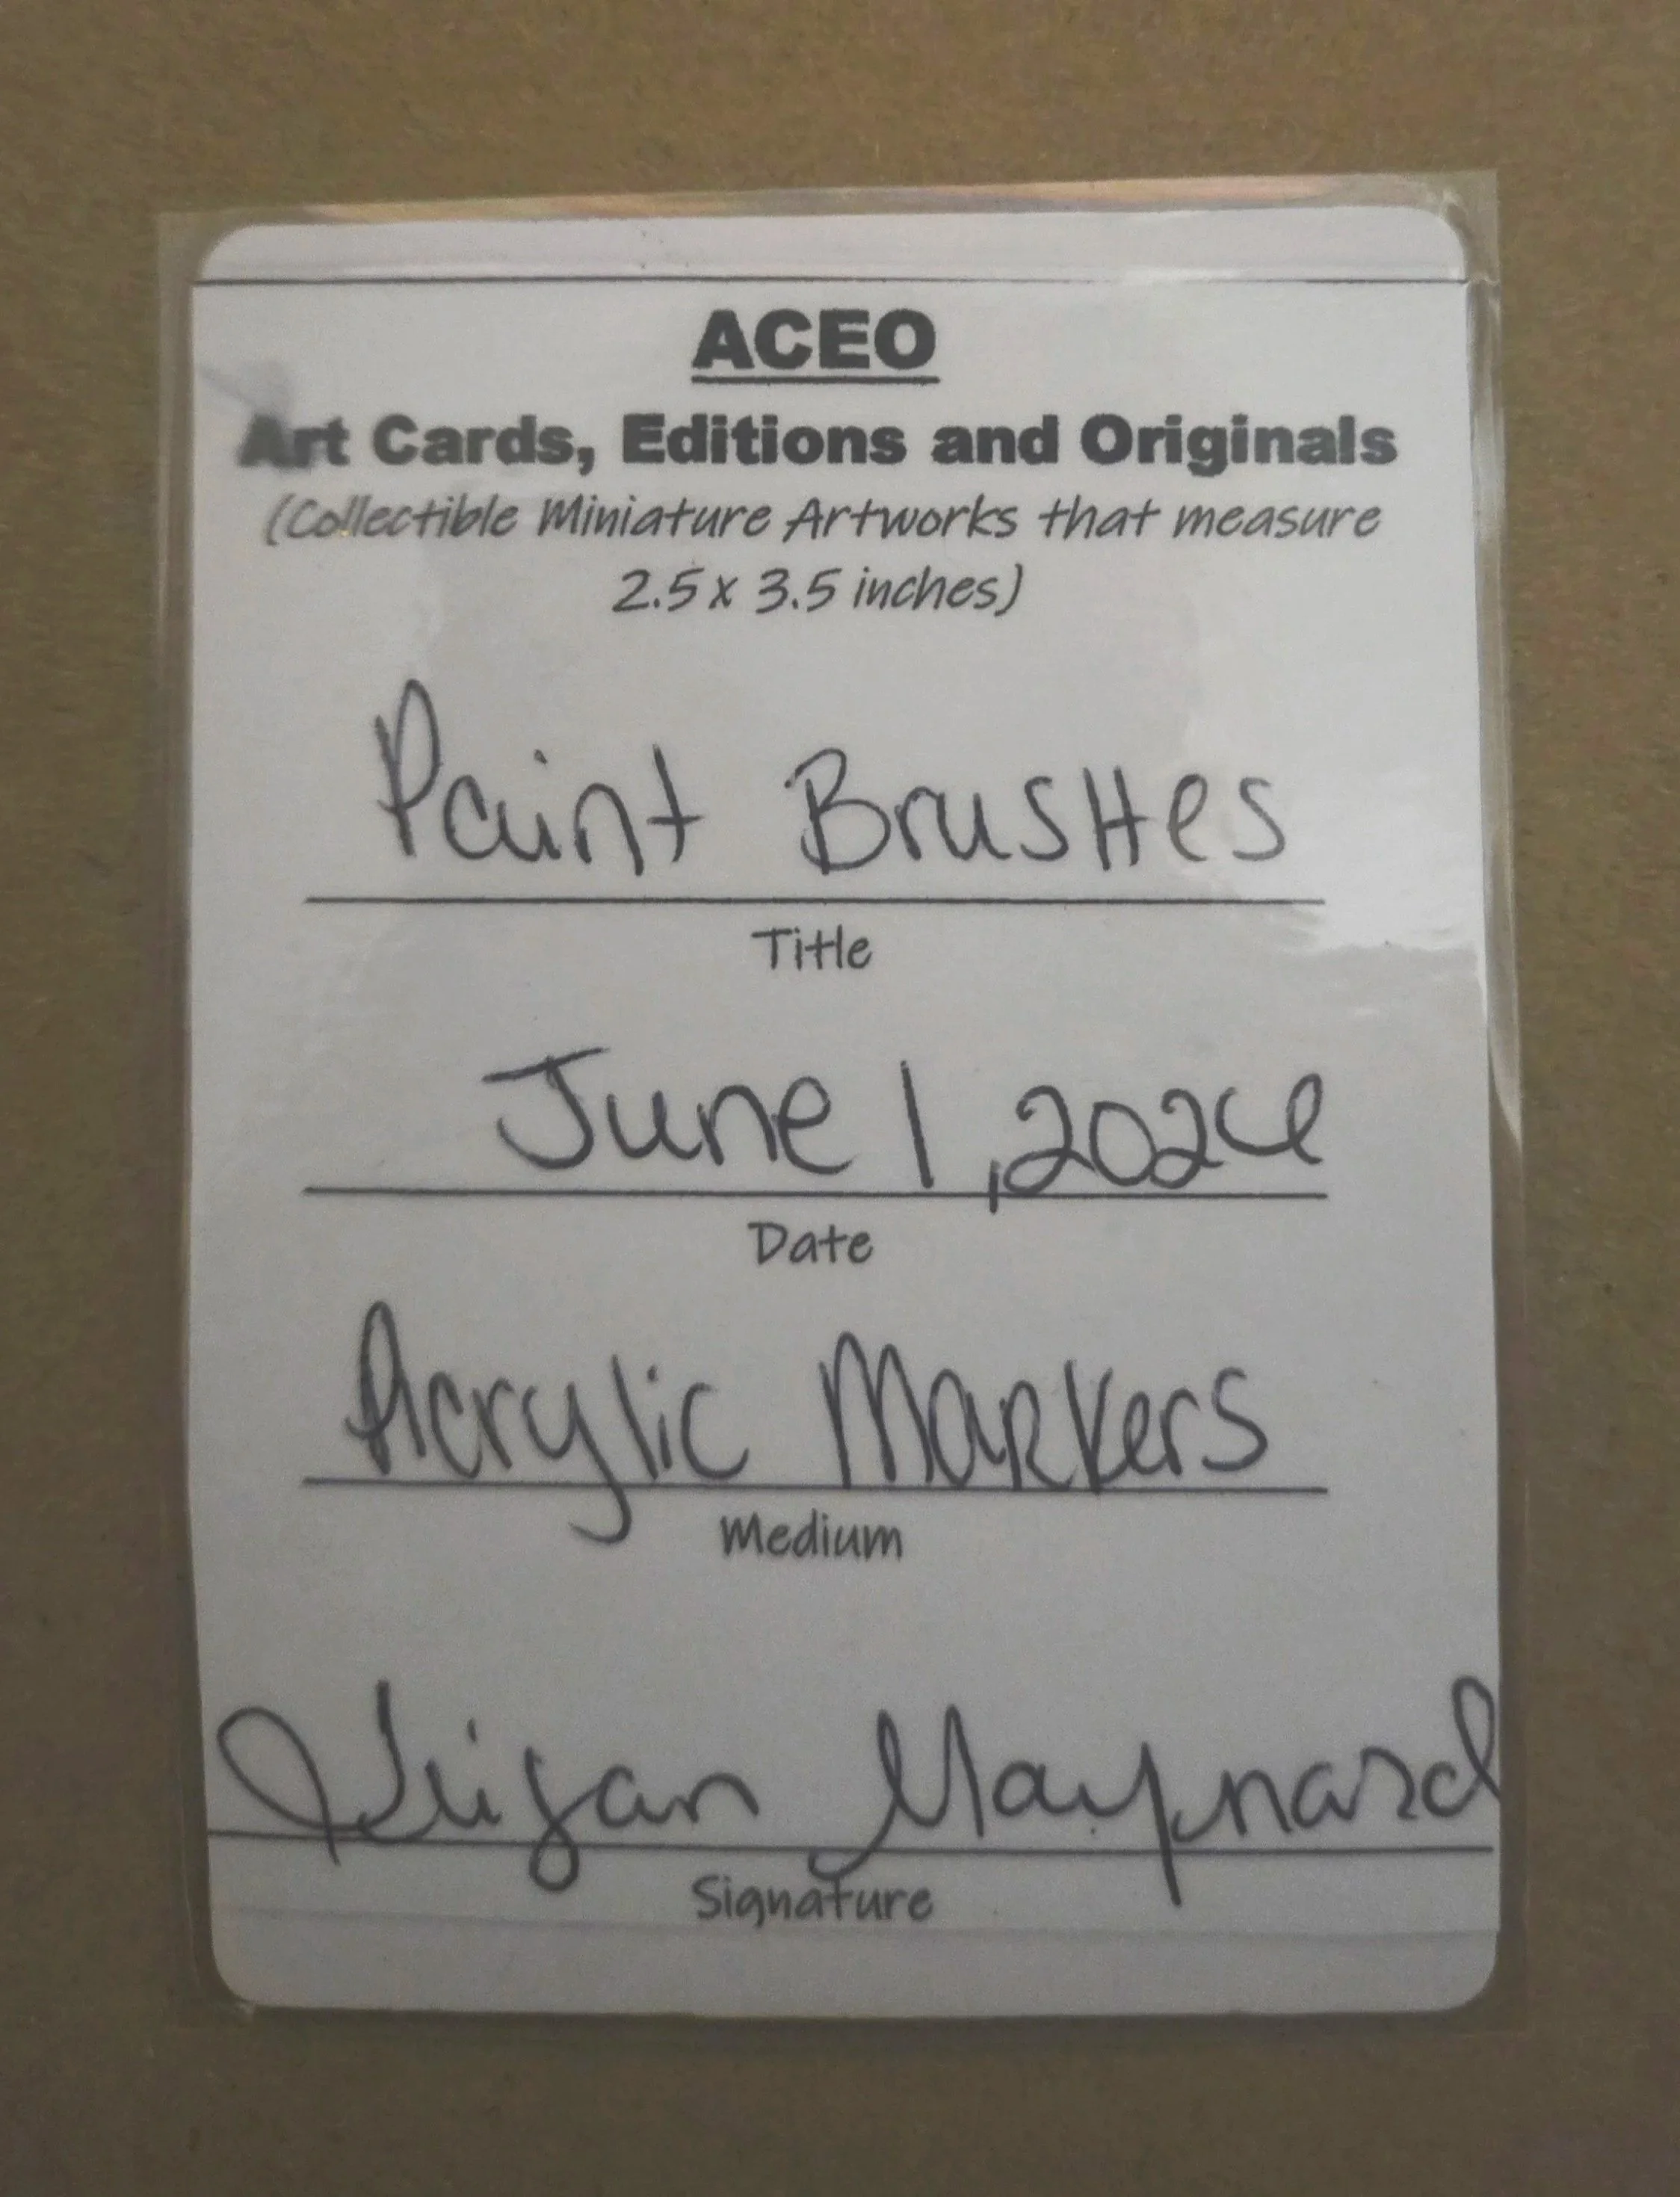 ACEO
Art Cards, Editions and Originals
(Collectible Miniature Artworks that measure
2.5 x 3.5 inches)
Paint BrusHes
Title
June 1, 2024
Date
Acrylic MaRKers
Medium
Keigan Maynard
Signature